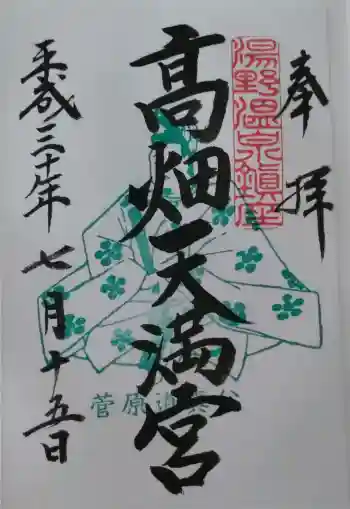 奉拝
湯野温泉鎮座
高畑天満宮
平成三十年
七月十五日
菅原道真公